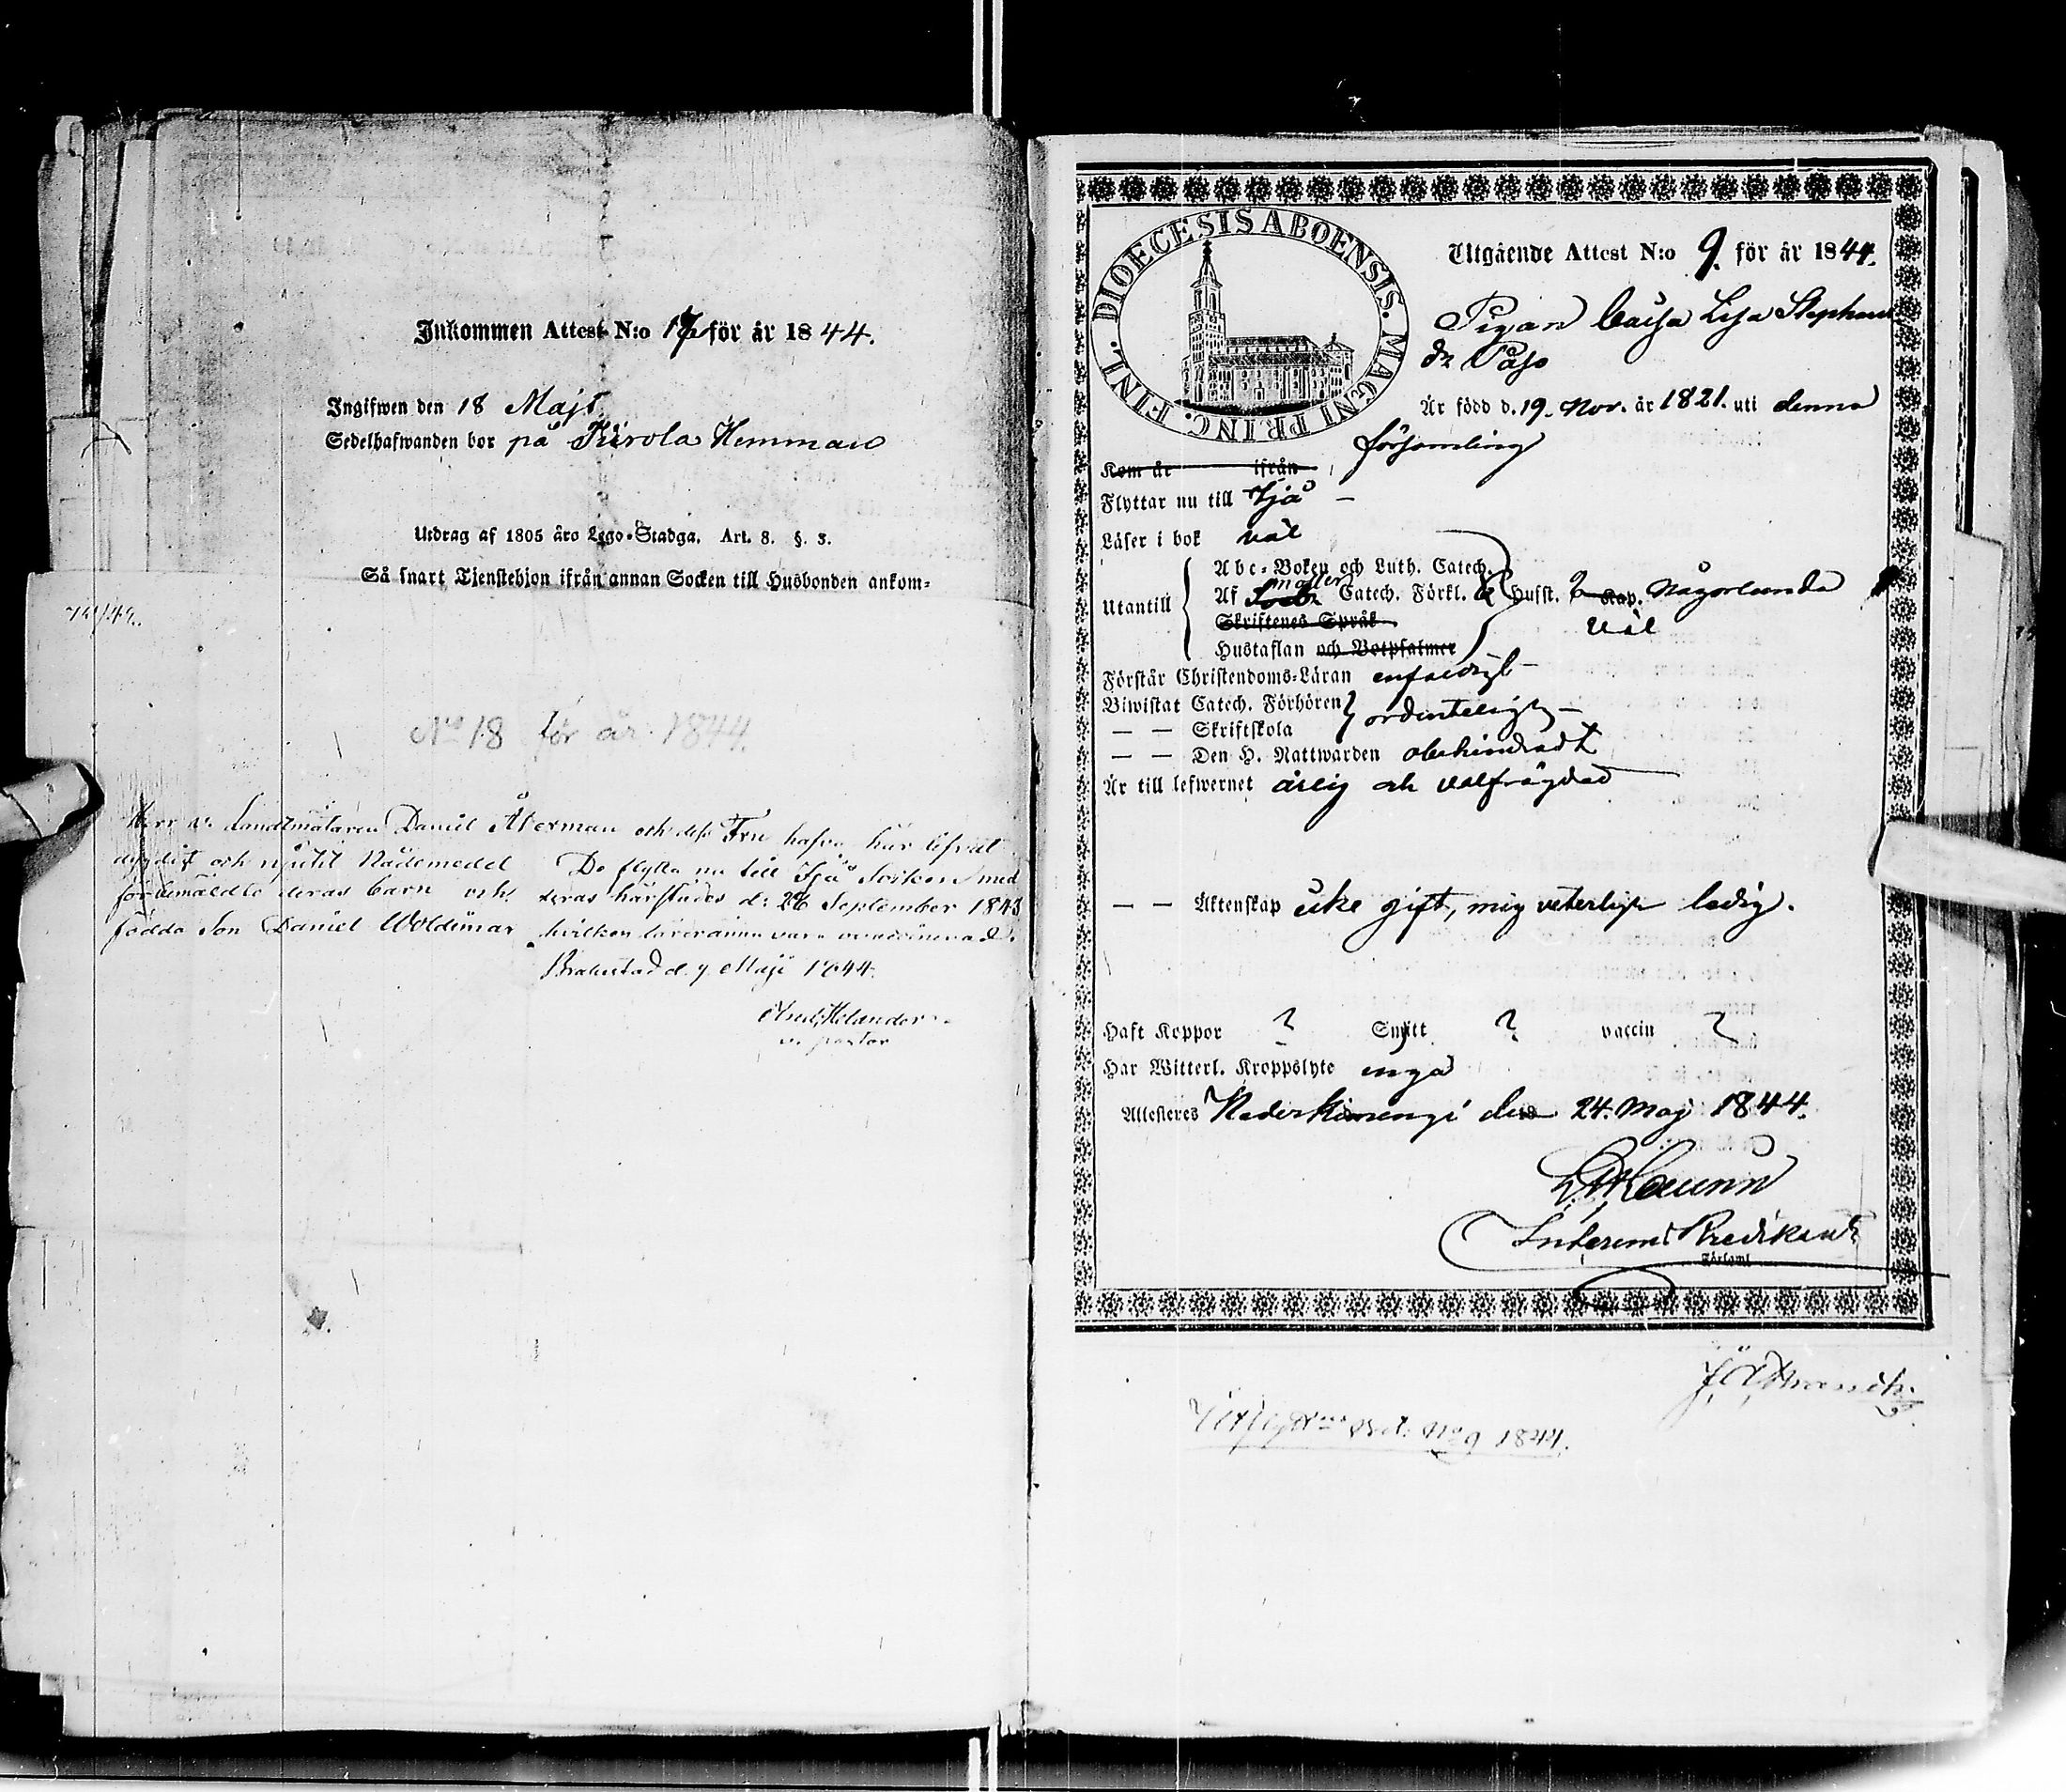 Inkommen Attest N:o 17 för år 1844.
Ingifwen den 18 Maji
Sedelhafwanden bor på Kirola Hemman
Utdrag af 1805 års Lego-Stadga. Art. 8. §. 3.
Så snart Tjenstehjon ifrån annan Socken till Husbonden ankom-
No 18 för år 1844.
Herr v. Landtmätaren Daniel Åkerman och dess Fru hafva här lefvat
dygdigt och njutit Nådemedel De flytta nu till Ijå Socken med
förbemäldte deras barn och deras härstädes d: 26 September 1843
födda Son Daniel Woldemar hvilken
Brahestad d. 7 Maji 1844.
Helander
v. pastor
DIOECESIS ABOENSIS. MAGNI PRINC. FINL.
Utgående Attest N:o 9. för år 1844.
Pigan Caisa Lisa Stephans
dr Påso
Är född d. 19. Nov. år 1821. uti denna
församling
Kom år ifrån
Flyttar nu till Ijå
Läser i bok väl
Utantill
Abc-Boken och Luth. Catech.
Af Catech. Förkl. Husst. Kap. Någorlunda
Skriftenes Språk
väl
Hustaflan och Botpsalmer
Förstår Christendoms-Läran enfaldigt
Biwistat Catech. Förhören
ordenteligt
— — Skriftskola
— — Den H. Nattwarden obehindradt
Är till lefwernet ärlig och välfrägdad
— — Äktenskap icke gift, mig veterligt ledig.
Haft Koppor ? Smitt ? vaccin ?
Har Witterl. Kroppslyte inga
Attesteres Nederkimengi den 24. Maj 1844.
Interims Predikant
Församl.
No 9 1844.